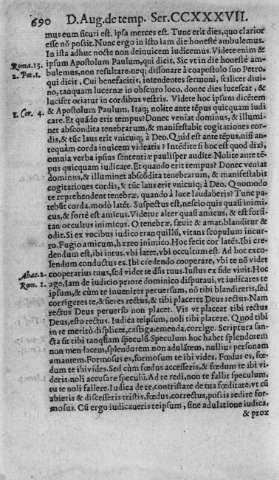 690 D. Aug. de temp. Ser. CCXXXVII.
mus eum securi est. ipsa merces est. Tunc erit dies, quo clarior
esse nõ possit. Nunc ergo in isto iam die honestè ambulemus.
In ista adhuc nocte non deinuicem iudicemus. Videre enim &
Roma. 13. ipsum Apostolum Paulum, qui dicit, Sic vt in die honestè am-
2. Pet. 1. bulemus, non resultare neq; dissonare à coapostolo suo Petro
qui dicit, Cui benefacitis, intendentes sermoni, scilicet diui-
no, tanquam lucernæ in obscuro loco, donec dies lucescat, &
lucifer oriatur in cordibus vestris. Videte hoc ipsum dicentem
1. Cor. 4. & Apostolum Paulum. Itaq; nolite ante tẽpus quicquam iudi-
care. Et quãdo erit tempus? Donec veniat dominus, & illumi-
net abscondita tenebrarum, & manifestabit cogitationes cor-
dis, & tũc laus erit vnicuiq; à Deo. Quid est ante tẽpus, nisi an-
tequàm corda inuicem videatis? Intẽdite si hoc est quod dixi,
omnia verba ipsius sententiæ paulisper audite. Nolite ante tẽ-
pus quicquam iudicare. Et quando erit tempus? Donec veniat
dominus, & illuminet abscõdita tenebrarum, & manifestabit
cogitationes cordis, & tũc laus erit vnicuiq; à Deo. Quomodo
te reprehendent tenebræ, quando à luce laudaberis? Tunc pa-
tebũt corda, modò latẽt. Suspectus est, nescio quis quasi inimi-
cus, & fortè est amicus. Videtur alter quasi amicus, & est forsi-
tan occultus inimicus. O tenebræ, sæuit & amat, blanditur &
odit. Si ex vocibus iudico tranquillũ, vitans scopulum incur-
ro. Fugio amicum, hæreo inimico. Hoc fecit cor latẽs. Ibi cre-
dendum est, ibi inres, vbi latet, vbi occultum est. Ad hoc exco-
lendum conductus es. Ibi credendo cooperare, vbi te nõ videt
Abac. 2. cooperarius tuus, sed videt te dñs tuus. Iustus ex fide viuit. Hoc
Rom. 1. ago, Iam de iudicio priore dominico disputaui, vt iudicares te
ipsum, & cùm te inueneris peruersum, nõ tibi blandireris, sed
corrigeres te, & fieres rectus, & tibi placeret Deus rectus. Nam
rectus Deus peruerso non placet. Vis vt placeat tibi rectus
Deus, esto rectus. Iudica teipsum, noli tibi parcere. Quod tibi
in te meritò displicet, castiga, emenda, corrige. Scriptura san-
cta sit tibi tanquam speculũ. Speculum hoc habet splendorem
non mendacem, splendorem non adulãtem, nullius personam
amantem. Formosus es, formosum te ibi vides. Fœdus es, fœ-
dum te ibi vides. Sed cùm fœdus accesseris, & fœdum te ibi vi-
deris, noli accusare speculũ. Ad te redi, non te fallit speculum,
tu te noli fallere. Iudica de te, contristare de tua fœditate, vt cũ
abieris & discesseris tristis, fœdus, correctus, possis redire for-
mosus. Cũ ergo iudicaueris teipsum, sine adulatione iudica,
& proxi